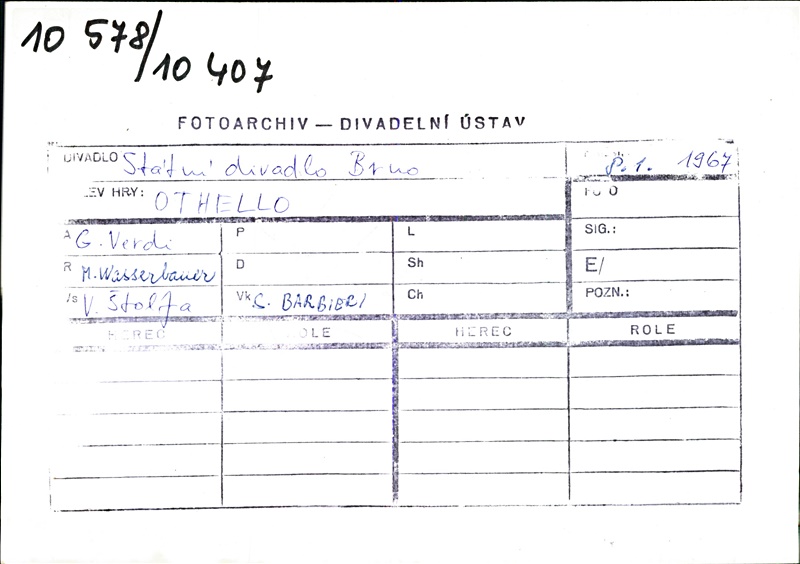 10 578/
10 407
FOTOARCHIV — DIVADELNÍ ÚSTAV
DIVADLO Státní divadlo Brno
1967
EV HRY: OTHELLO
FO O
A G. Verdi P L SIG.:
R M. Wasserbauer D Sh E/
/s V. Štolfa Vk C. BARBIERI Ch POZN.:
HEREC OLE HEREC ROLE